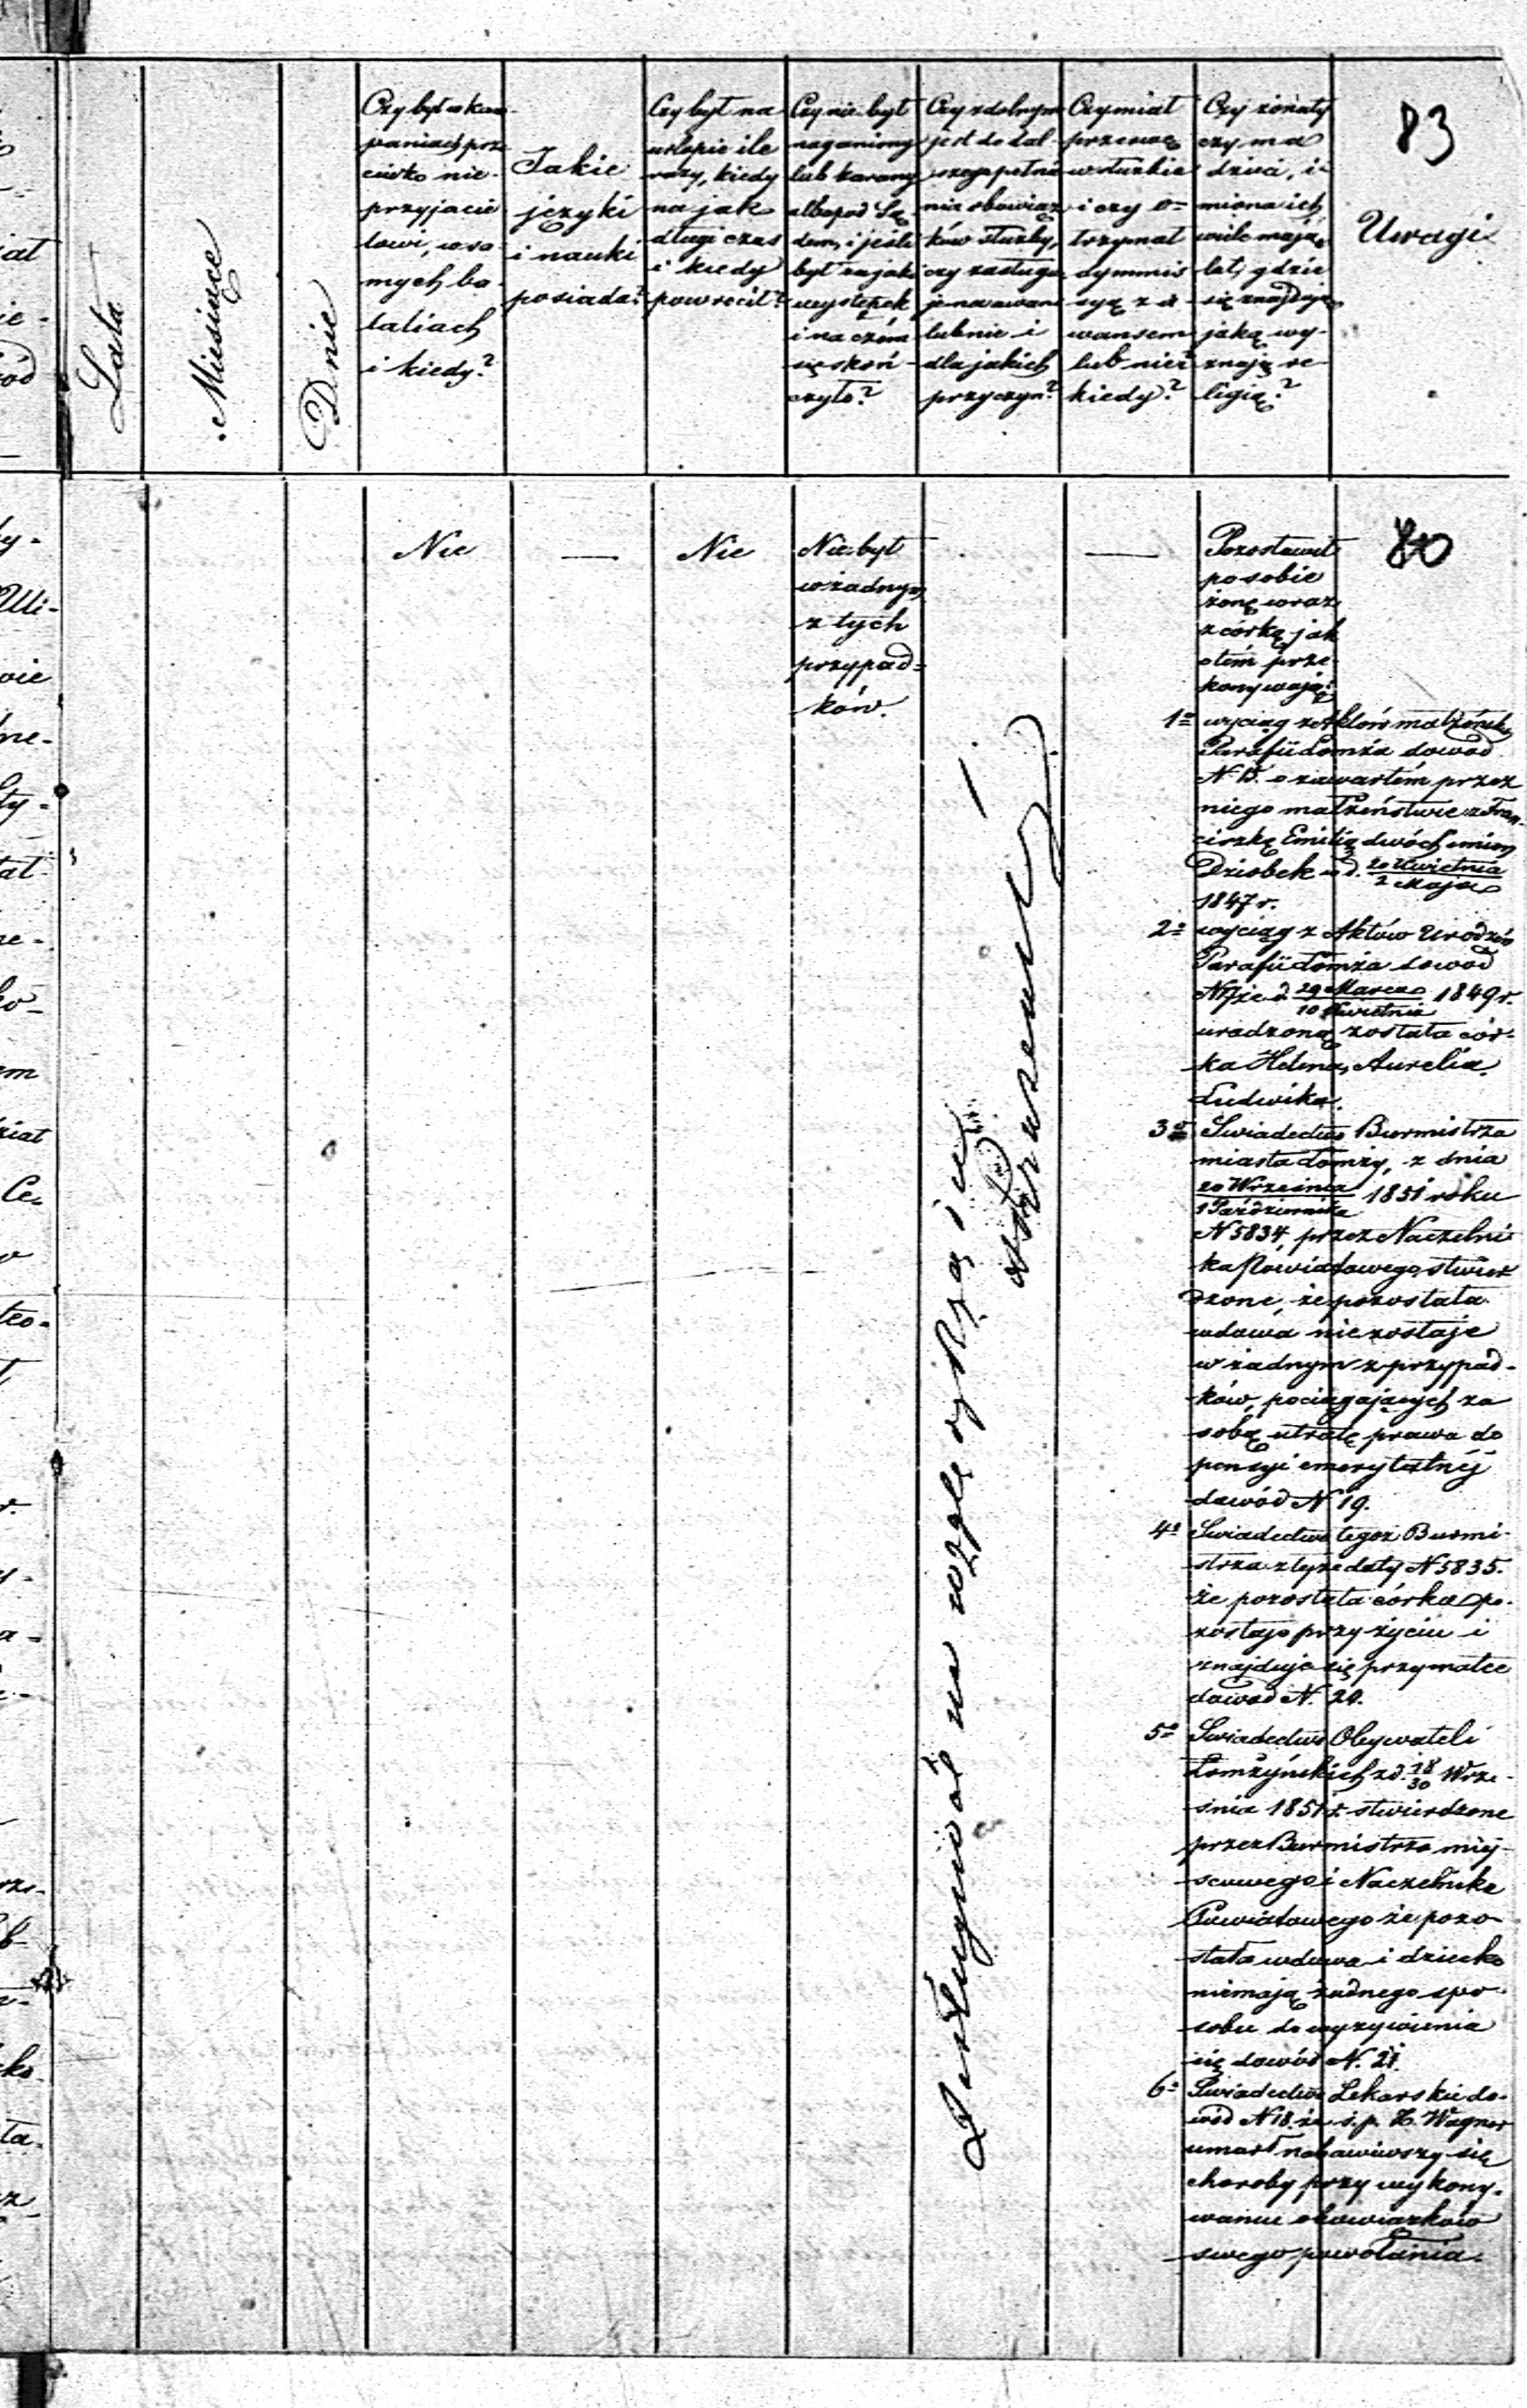 Lata
Miesiące
Dnie
Czy był w kam-
paniach prze-
ciwko nie-
przyjacie
lowi, w sa
mych ba-
taliach
i kiedy?
Jakie
języki
i nauki
posiada?
Czy był na
urlopie ile
razy, kiedy
na jak
długi czas
i kiedy
powrócił?
Czy nie był
naganiony
lub karany
albo pod Są-
dem, i jeśli
był za jaki
występek
i na czém
się skoń-
czyło?
Czy zdolnym
jest do dal-
szego pełnie
nia obowiąz
ków służby,
czy zasługu
je na awans
lub nie i
dla jakich
przyczyn?
Czy miał
przerwę
w służbie
i czy o-
trzymał
dymmis
syą z a-
wansem
lub nie i
kiedy?
Czy żonaty
czy ma
dzieci, i-
miona ich
wiele mają
lat, gdzie
się znajdują
jaką wy-
znają re-
ligią?
83
Uwagi
Nie
—
Nie
Nie był
w żadnym
z tych
przypad=
ków.
Zasługiwał na względy Rządu
—
Pozostawił
po sobie
żonę wraz
z córką jak
o tém prze-
konywają:
80
1o wyciąg z Aktów małżeńskich
Parafii Łomża dowód
N 15. o zawartém przez
niego małżeństwie z Fran-
ciszką Emilią dwóch imion
Dziobek w d. 20 Kwietnia
2 Maja
1847 r.
2o wyciąg z Aktów Urodzin
Parafii Łomża dowód
N 17 że d. 29 Marca 1849 r.
10 Kwietnia
urodzoną została cór-
ka Helena, Aurelia,
Ludwika.
3o Świadectwo Burmistrza
miasta Łomży, z dnia
20 Września 1851 roku
1 Października
N 5834, przez Naczelni
ka Powiatowego, stwier
dzone, że pozostała
wdowa nie zostaje
w żadnym z przypad-
ków, pociągających za
sobą utratę prawa do
pensyi emerytalnéj
dowód N 19.
4o Świadectwo tegoż Burmi-
strza z tejże daty N 5835.
że pozostała córka po-
zostaje przy życiu i
znajduje się przy matce
dowód N. 20.
5o Świadectwo Obywateli
Łomżyńskich z d. 18 Wrze-
30
śnia 1851 r. stwierdzone
przez Burmistrza miej-
scowego i Naczelnika
Powiatowego że pozo-
stała wdowa i dziecko
niemają żadnego spo-
sobu do wyżywienia
się dowód N. 21.
6o Świadectwo Lekarskie do-
wód N 18. że ś. p. Wagner
umarł nabawiwszy się
choroby przy wykony-
waniu obowiązków
swego powołania.